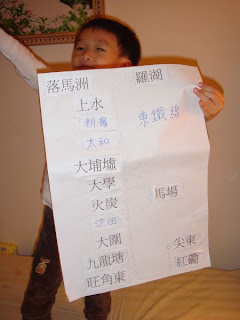 落馬洲 羅湖
上水 東鐵綫
粉嶺
太和
大埔墟
大學 馬場
火炭
沙田
大圍 尖東
九龍塘 紅磡
旺角東